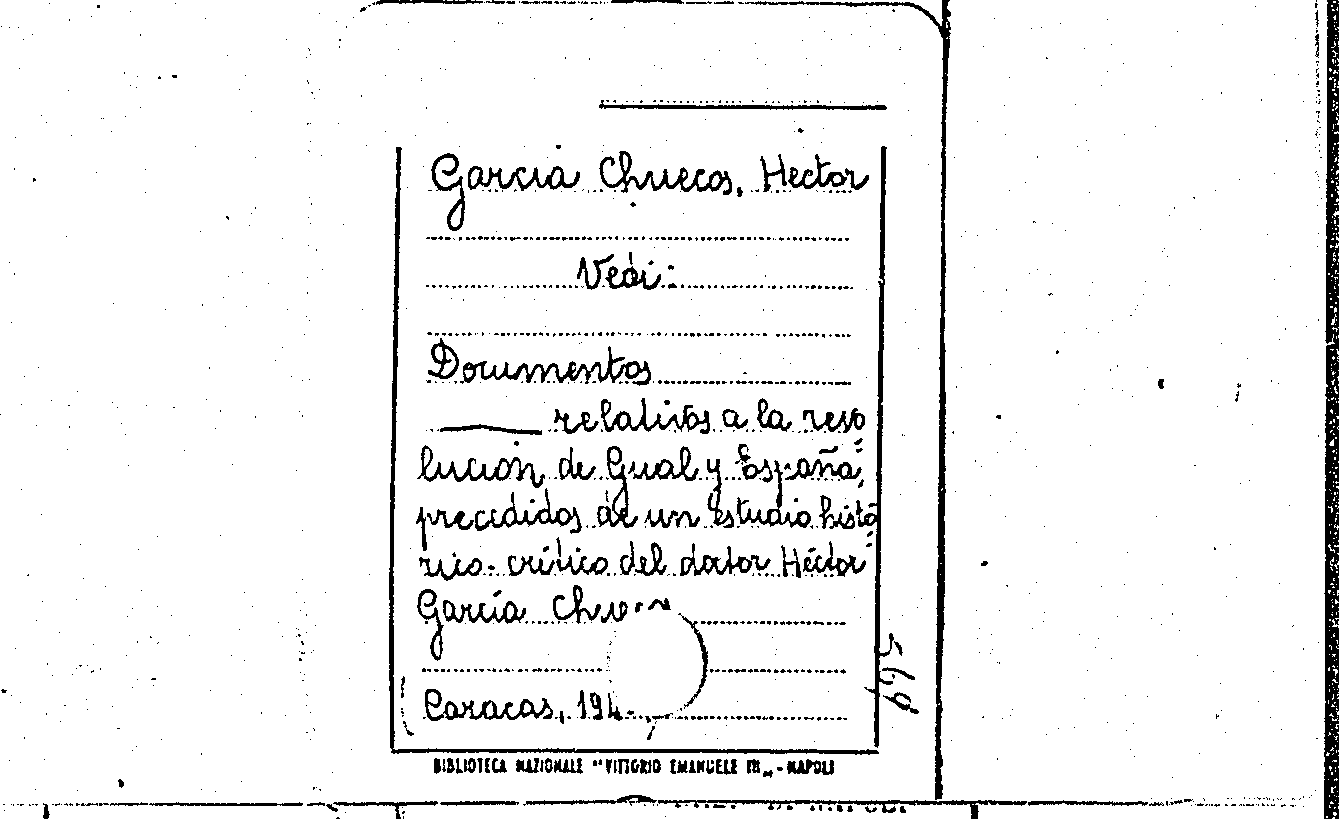 Garcia Chuecos, Hector
Vedi:
Documentos
relativos a la revo
lución de Gual y España,
precedidos de un estudio histó
rico-crítico del doctor Héctor
García
Caracas,
569
BIBLIOTECA NAZIONALE "VITTORIO EMANUELE III„ - NAPOLI